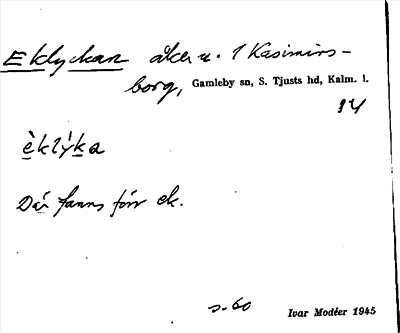 Eklyckan åker u. 1 Kasimirs-
borg, Gamleby sn, S. Tjusts hd, Kalm. l.
è̠klỳk̠a
Där fanns förr ek.
s. 60 Ivar Modéer 1945